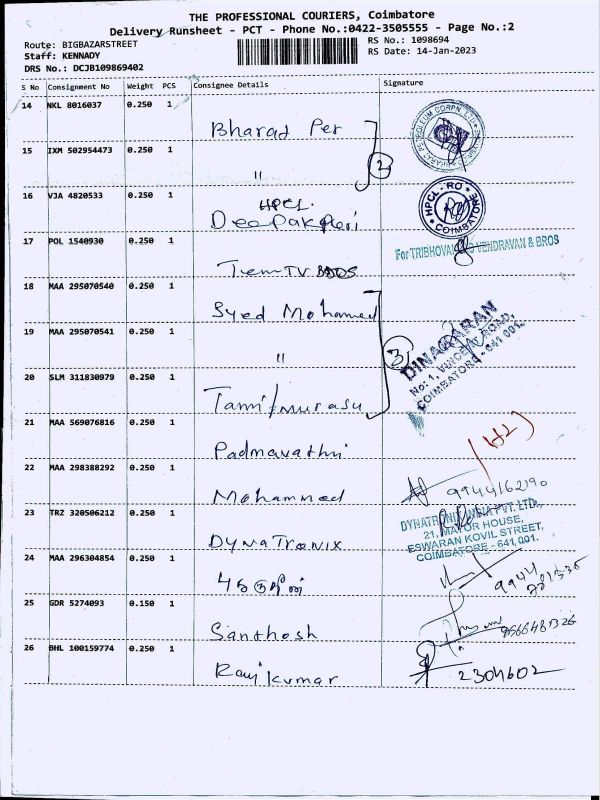 THE PROFESSIONAL COURIERS, Coimbatore
Delivery Runsheet - PCT - Phone No.:0422-3505555 - Page No.:2
Route: BIGBAZARSTREET
Staff: KENNADY
DRS No.: DCJB109869402
RS No.: 1098694
RS Date: 14-Jan-2023
S No Consignment No Weight PCS Consignee Details Signature
14 NKL 8016037 0.250 1
Bharat Per
15 IXM 502954473 0.250 1
"
2
16 VJA 4820533 0.250 1
HPCL.
Deepak
HPCL-RO
COIMBATORE
17 POL 1540930 0.250 1
For TRIBHOVANDAS VENDRAVAN & BROS
18 MAA 295070540 0.250 1
Syed Mohamed
19 MAA 295070541 0.250 1
"
3
DINAGARAN
COIMBATORE - 641 001.
20 SLM 311830979 0.250 1
Tamil murasu
21 MAA 569076816 0.250 1
Padmavathi
22 MAA 298388292 0.250 1
Mohammed
9944162190
23 TRZ 320506212 0.250 1
DYNATRONIX
DYNATRONIX INDIA PVT. LTD.,
21, MAYOR HOUSE,
ESWARAN KOVIL STREET,
COIMBATORE - 641 001.
24 MAA 296304854 0.250 1
9944
25 GDR 5274093 0.150 1
Santhosh
26 BHL 100159774 0.250 1
Ravikumar
2304602